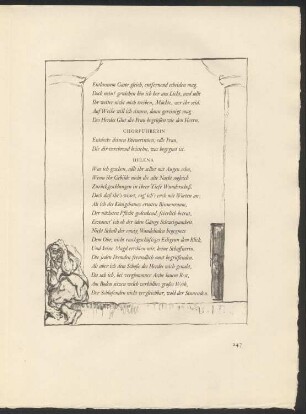 Entlassnem Gaste gleich, entfernend scheiden mag.
Doch nein! gewichen bin ich her ans Licht, und sollt
Ihr weiter nicht mich treiben, Mächte, wer ihr seid.
Auf Weihe will ich sinnen, dann gereinigt mag
Des Herdes Glut die Frau begrüßen wie den Herrn.
CHORFÜHRERIN
Entdecke deinen Dienerinnen, edle Frau,
Die dir verehrend beistehn, was begegnet ist.
HELENA
Was ich gesehen, sollt ihr selbst mit Augen sehn,
Wenn ihr Gebilde nicht die alte Nacht sogleich
Zurückgeschlungen in ihrer Tiefe Wunderschoß.
Doch daß ihr's wisset, sag' ich's euch mit Worten an:
Als ich des Königshauses ernsten Binnenraum,
Der nächsten Pflicht gedenkend, feierlich betrat,
Erstaunt' ich ob der öden Gänge Schweigsamkeit.
Nicht Schall der emsig Wandelnden begegnete
Dem Ohr, nicht raschgeschäftiges Eiligtun dem Blick,
Und keine Magd erschien mir, keine Schaffnerin,
Die jeden Fremden freundlich sonst begrüßenden.
Als aber ich dem Schoße des Herdes mich genaht,
Da sah ich, bei verglommner Asche lauem Rest,
Am Boden sitzen welch verhülltes großes Weib,
Der Schlafenden nicht vergleichbar, wohl der Sinnenden.